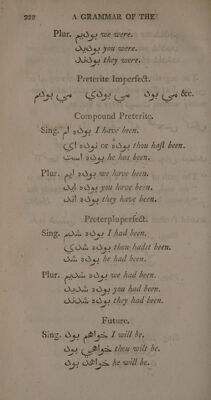 222 A GRAMMAR OF THE
Plur. بودیم we were.
بودید you were.
بودند they were.
Preterite Imperfect.
می بودم می بودی می بود &c.
Compound Preterite.
Sing. بوده ام I have been.
بوده ای or بودهٔ thou hast been.
بوده است he has been.
Plur. بوده ایم we have been.
بوده اید you have been.
بوده اند they have been.
Preterpluperfect.
Sing. بوده شدم I had been.
بوده شدی thou hadst been.
بوده شد he had been.
Plur. بوده شدیم we had been.
بوده شدید you had been.
بوده شدند they had been.
Future.
Sing. خواهم بود I will be.
خواهی بود thou wilt be.
خواهد بود he will be.